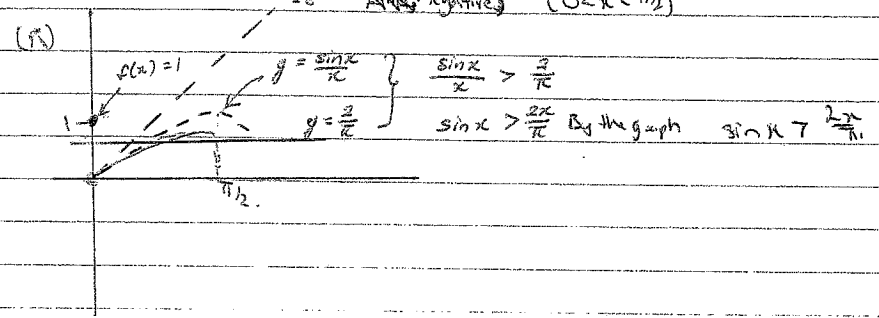 (0 < x < π/2)
(iii)
f(x) = 1
y = sin x / x } sin x / x > 2/π
1
y = 2/π sin x > 2x/π By the graph sin x > 2x/π
π/2.